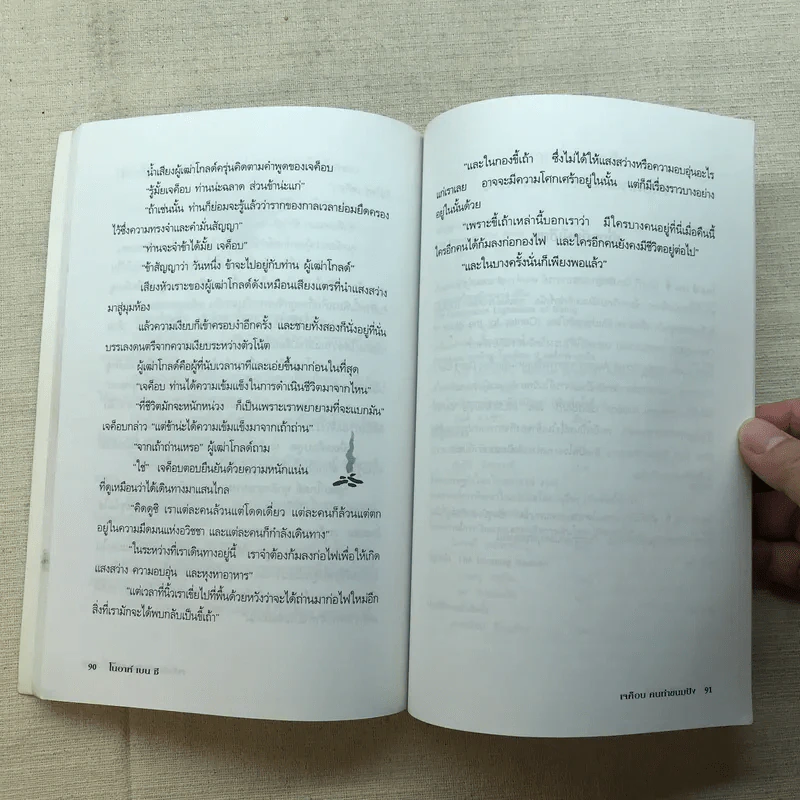 น้ำเสียงผู้เฒ่าโกลด์ครุ่นคิดตามคำพูดของเจค็อบ
"รู้มั้ยเจค็อบ ท่านน่ะฉลาด ส่วนข้าน่ะแก่"
"ถ้าเช่นนั้น ท่านก็ย่อมจะรู้แล้วว่ารากของกาลเวลาย่อมยึดครอง
ไว้ซึ่งความทรงจำและคำมั่นสัญญา"
"ท่านจะจำข้าได้มั้ย เจค็อบ"
"ข้าสัญญาว่า วันหนึ่ง ข้าจะไปอยู่กับท่าน ผู้เฒ่าโกลด์"
เสียงหัวเราะของผู้เฒ่าโกลด์ดังเหมือนเสียงแตรที่นำแสงสว่าง
มาสู่มุมห้อง
แล้วความเงียบก็เข้าครอบงำอีกครั้ง และชายทั้งสองก็นั่งอยู่ที่นั่น
บรรเลงดนตรีจากความเงียบระหว่างตัวโน้ต
ผู้เฒ่าโกลด์คือผู้ที่นับเวลานาทีและเอ่ยขึ้นมาก่อนในที่สุด
"เจค็อบ ท่านได้ความเข้มแข็งในการดำเนินชีวิตมาจากไหน"
"ที่ชีวิตมักจะหนักหน่วง ก็เป็นเพราะเราพยายามที่จะแบกมัน"
เจค็อบกล่าว "แต่ข้าน่ะได้ความเข้มแข็งมาจากเถ้าถ่าน"
"จากเถ้าถ่านเหรอ" ผู้เฒ่าโกลด์ถาม
"ใช่" เจค็อบตอบยืนยันด้วยความหนักแน่น
ที่ดูเหมือนว่าได้เดินทางมาแสนไกล
"คิดดูซิ เราแต่ละคนล้วนแต่โดดเดี่ยว แต่ละคนก็ล้วนแต่ตก
อยู่ในความมืดมนแห่งอวิชชา และแต่ละคนก็กำลังเดินทาง"
"ในระหว่างที่เราเดินทางอยู่นี้ เราจำต้องก้มลงก่อไฟเพื่อให้เกิด
แสงสว่าง ความอบอุ่น และหุงหาอาหาร"
"แต่เวลาที่นิ้วเราเขี่ยไปที่พื้นด้วยหวังว่าจะได้ถ่านมาก่อไฟใหม่อีก
สิ่งที่เรามักจะได้พบกลับเป็นขี้เถ้า"
90 โนอาห์ เบน ชี
"และในกองขี้เถ้า ซึ่งไม่ได้ให้แสงสว่างหรือความอบอุ่นอะไร
แก่เราเลย อาจจะมีความโศกเศร้าอยู่ในนั้น แต่ก็มีเรื่องราวบางอย่าง
อยู่ในนั้นด้วย"
"เพราะขี้เถ้าเหล่านี้บอกเราว่า มีใครบางคนอยู่ที่นี่เมื่อคืนนี้
ใครอีกคนได้ก้มลงก่อกองไฟ และใครอีกคนยังคงมีชีวิตอยู่ต่อไป"
"และในบางครั้งนั่นก็เพียงพอแล้ว"
เจค็อบ คนทำขนมปัง 91